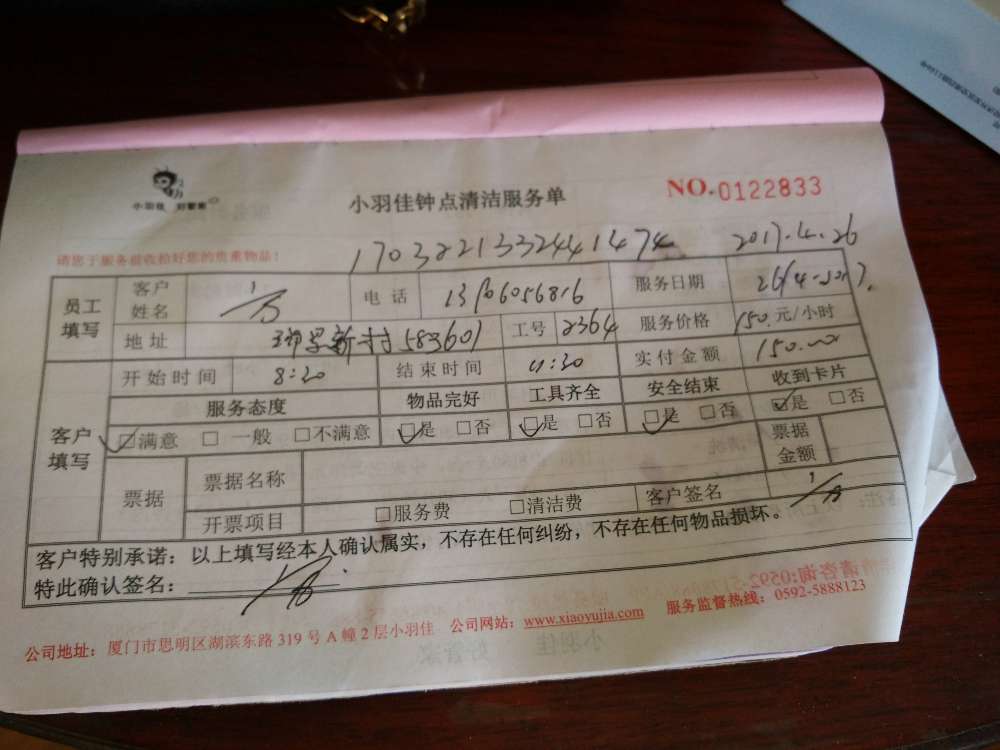 小羽佳 好管家
小羽佳钟点清洁服务单
NO.0122833
请您于服务前收拾好您的贵重物品！
1703221332441474 2017.4.26
员工填写 客户姓名 电话 服务日期
地址 583601 工号 2364 服务价格 150. 元/小时
开始时间 8:30 结束时间 11:30 实付金额 150.00
客户填写 服务态度 物品完好 工具齐全 安全结束 收到卡片
满意 一般 不满意 是 否 是 否 是 否 是 否
票据 票据名称 票据金额
开票项目 服务费 清洁费 客户签名
客户特别承诺：以上填写经本人确认属实，不存在任何纠纷，不存在任何物品损坏。
特此确认签名：
公司地址：厦门市思明区湖滨东路 319 号 A 幢 2 层小羽佳 公司网站：www.xiaoyujia.com 服务监督热线：0592-5888123